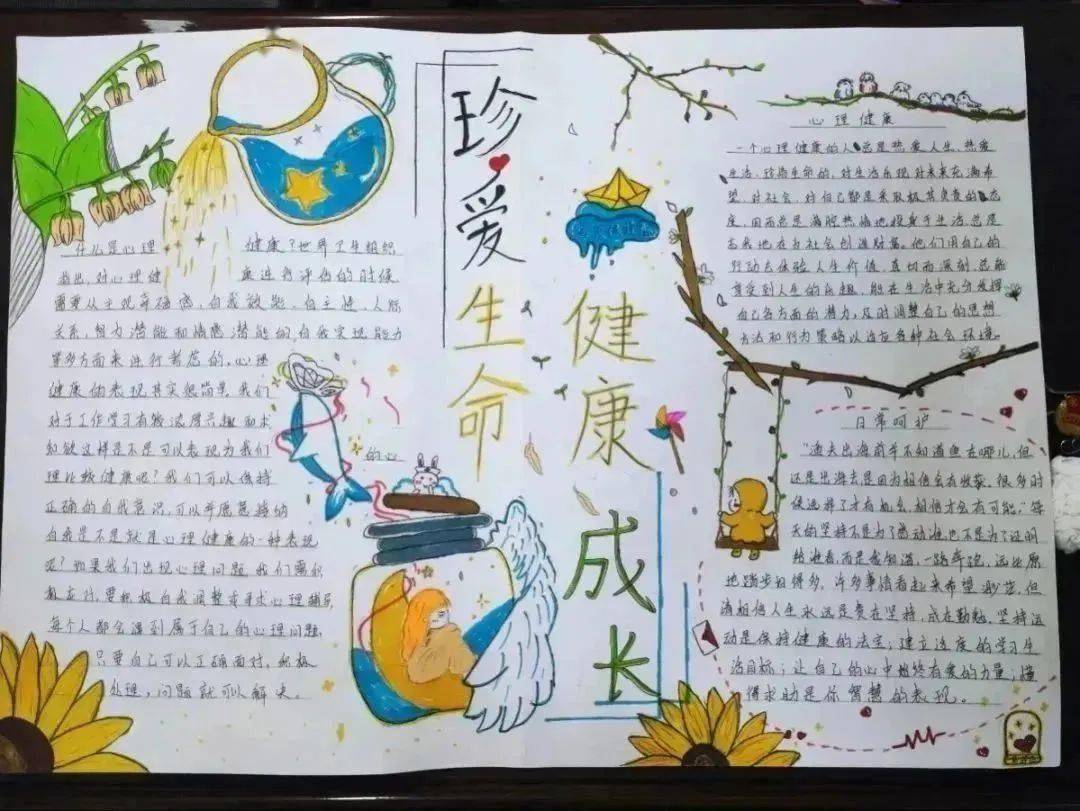 珍爱生命
健康成长
什么是心理健康？世界卫生组织
指出，对心理健
的时候
需要从主观幸福感，自我效能，自主性，人际
关系，智力潜能和情感潜能的自我实现能力
等多方面来进行考虑的，心理
健康的表现其实很简单，我们
对于工作学习有较浓厚兴趣和求
知欲这样是不是可以表现为我们
的心
理比较健康呢？我们可以保持
正确的自我意识，可以并愿意接纳
自我是不是就是心理健康的一种表现
呢？如果我们出现心理问题我们需积
极应对，要积极自我调整或寻求心理辅导
每个人都会遇到属于自己的心理问题，
只要自己可以正确面对，积极
处理，问题就可以解决。
心理健康
一个心理健康的人总是热爱人生、热爱
生活、珍惜生命的，对生活乐观对未来充满希
望，对社会、对自己都是采取极其负责的态
度，因而总是满腔热情地投身于生活总是
在为社会创造财富。他们用自己的
行动去体验人生价值，真切而深刻，总能
享受到人生的乐趣，能在生活中充分发挥
自己各方面的潜力，及时调整自己的思想
方法和行为策略以适应各种社会环境。
日常呵护
“渔夫出海前并不知道鱼在哪儿，但
还是出海去是因为相信会有收获。很多时
候选择了才有机会，相信才会有可能。”每
天的坚持不是为了感动谁，也不是为了证明
给谁看，而是我知道，一路奔跑，远比原
地踏步来得多，许多事情看起来希望渺茫，但
请相信人生永远是贵在坚持，成在勤勉，坚持运
动是保持健康的法宝；建立适度的学习生
活目标；让自己的心中始终有爱的力量；懂
得求助是你智慧的表现。